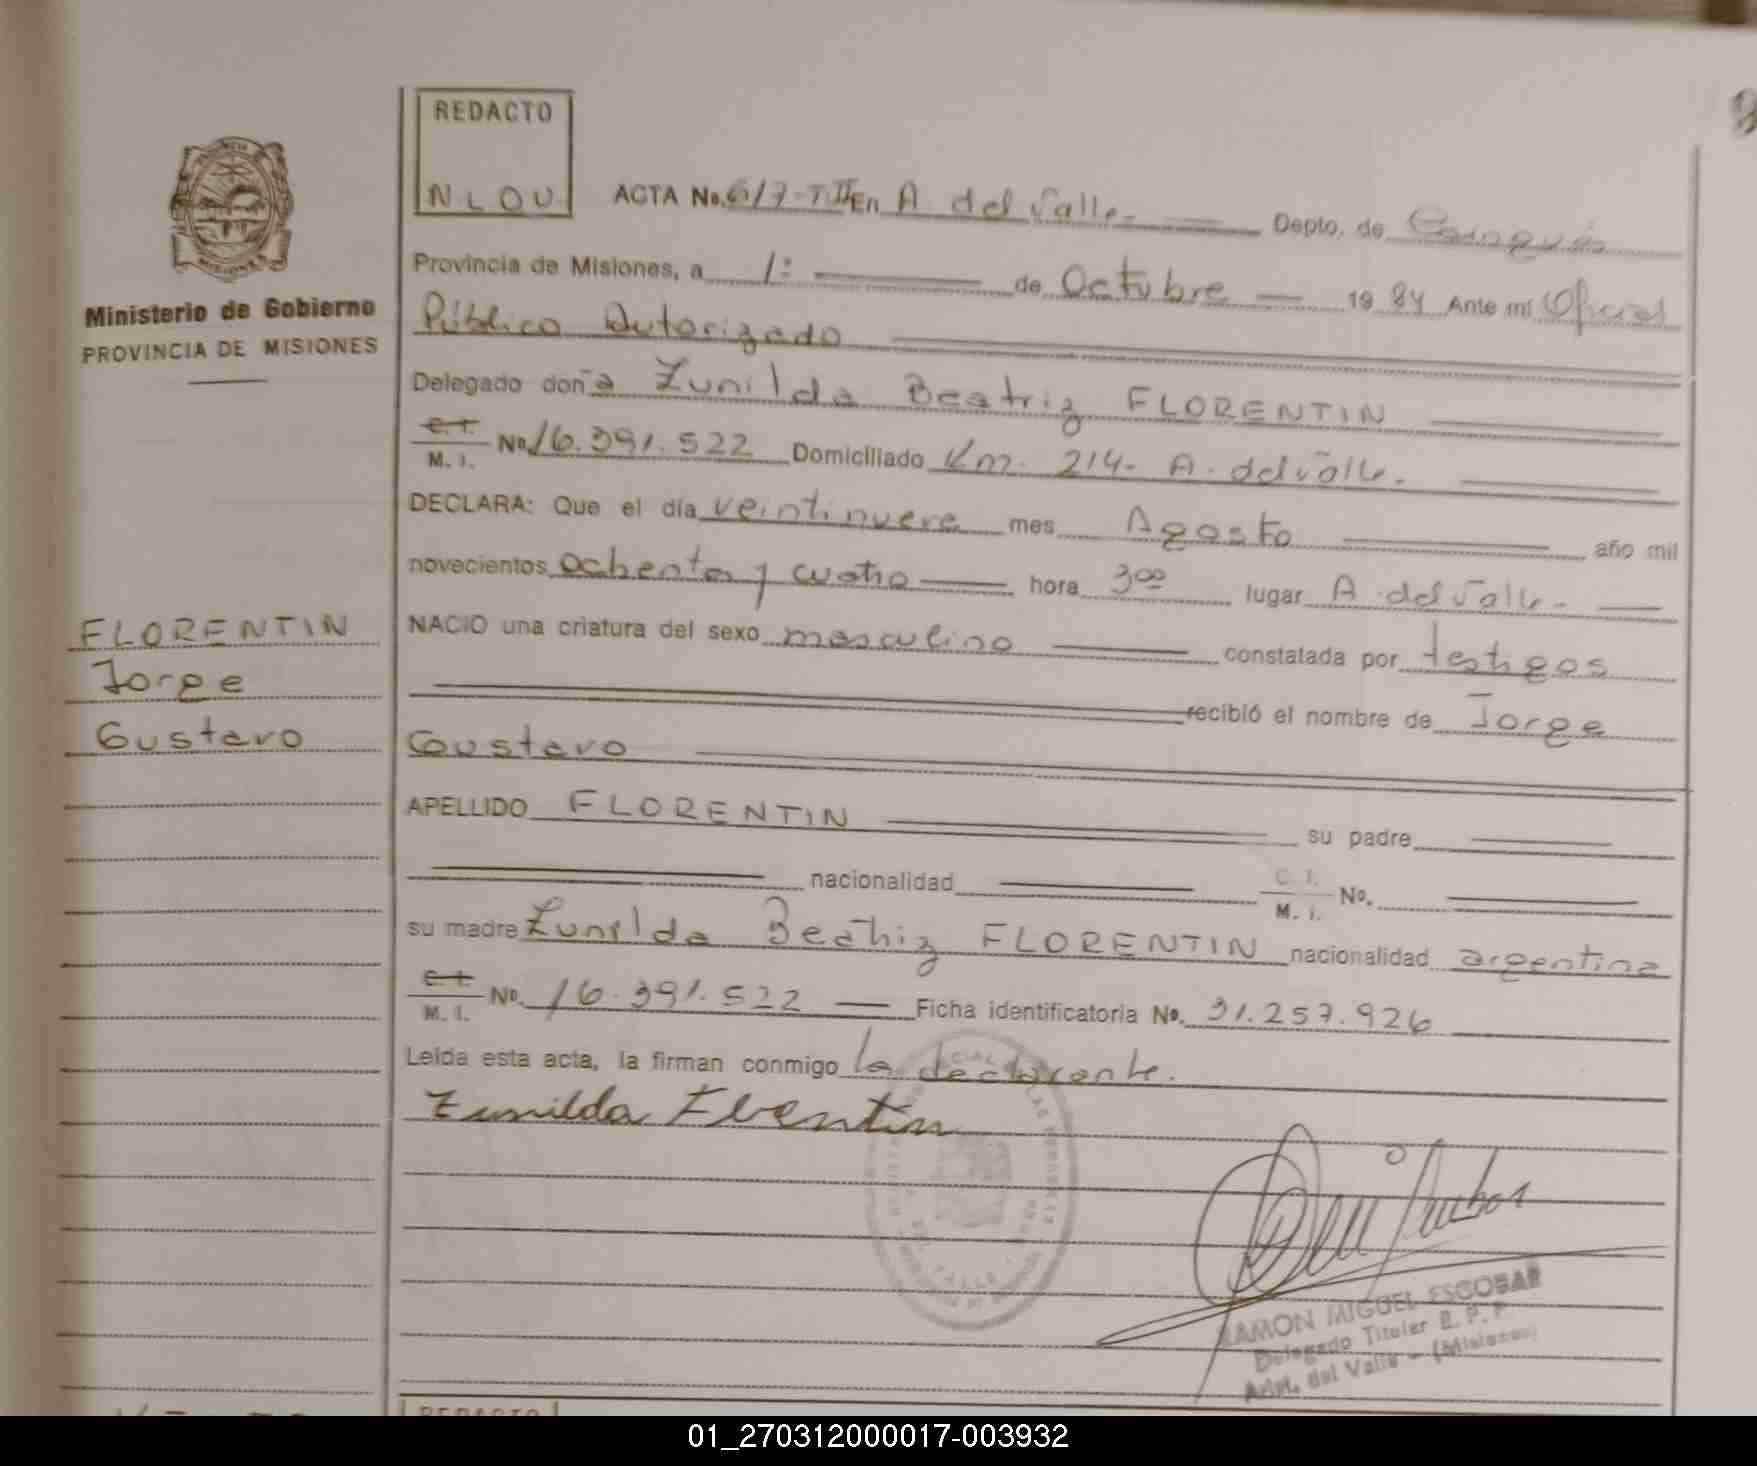 REDACTO
N L O U
ACTA No. 617-TII En A del Valle- Depto. de Cainguás
Provincia de Misiones, a 1º de Octubre 1984 Ante mí Oficial
Público Autorizado
Delegado doña Zunilda Beatriz FLORENTIN
C. I. / M. I. No 16.391.522 Domiciliado Km. 214- A. del Valle.
DECLARA: Que el día veintinueve mes Agosto año mil
novecientos ochenta y cuatro hora 3:00 lugar A del Valle-
NACIO una criatura del sexo masculino constatada por testigos
recibió el nombre de Jorge
Gustavo
APELLIDO FLORENTIN su padre
nacionalidad C. I. / M. I. No.
su madre Zunilda Beatriz FLORENTIN nacionalidad argentina
C. I. / M. I. No. 16.391.522 Ficha identificatoria No. 31.257.926
Leída esta acta, la firman conmigo la declarante.
Zunilda Florentin
RAMON MIGUEL ESCOBAR
Delegado Titular R. P. P.
Arist. del Valle - (Misiones)
PROVINCIA
MISIONES
Ministerio de Gobierno
PROVINCIA DE MISIONES
FLORENTIN
Jorge
Gustavo
REDACTO
01_270312000017-003932